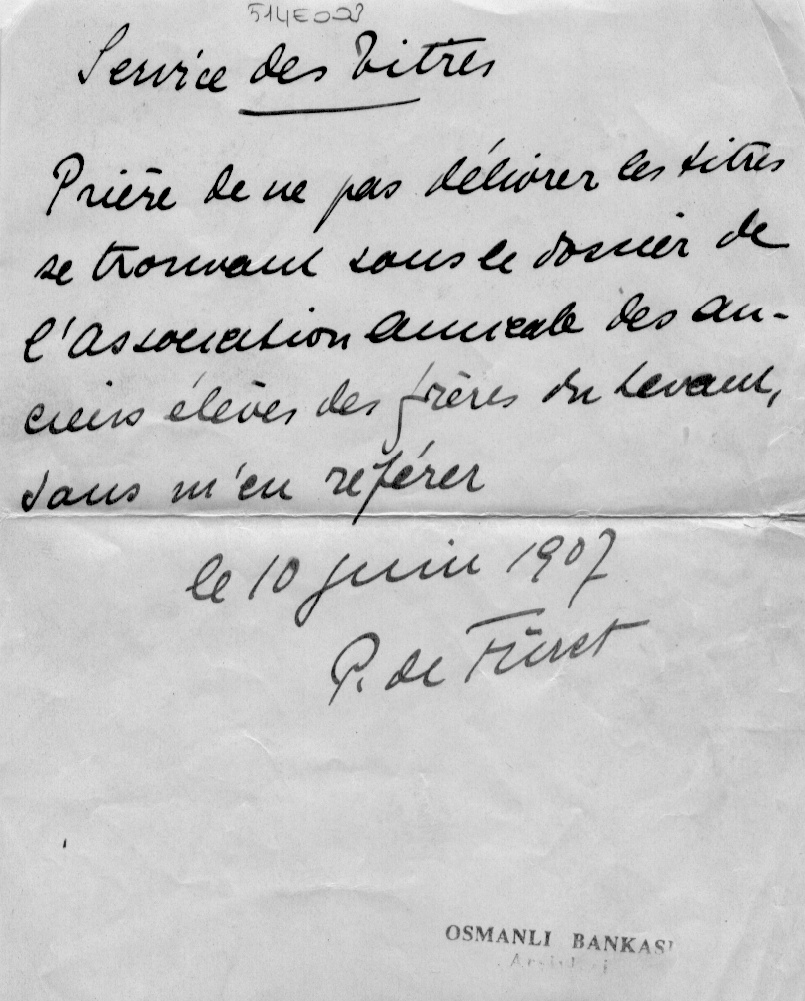 514E008
Service des Titres
Prière de ne pas délivrer les titres
se trouvant sous le dossier de
l'Association amicale des an-
ciens élèves des frères du Levant,
sans m'en référer
le 10 Juin 1907
P. de
OSMANLI BANKASI